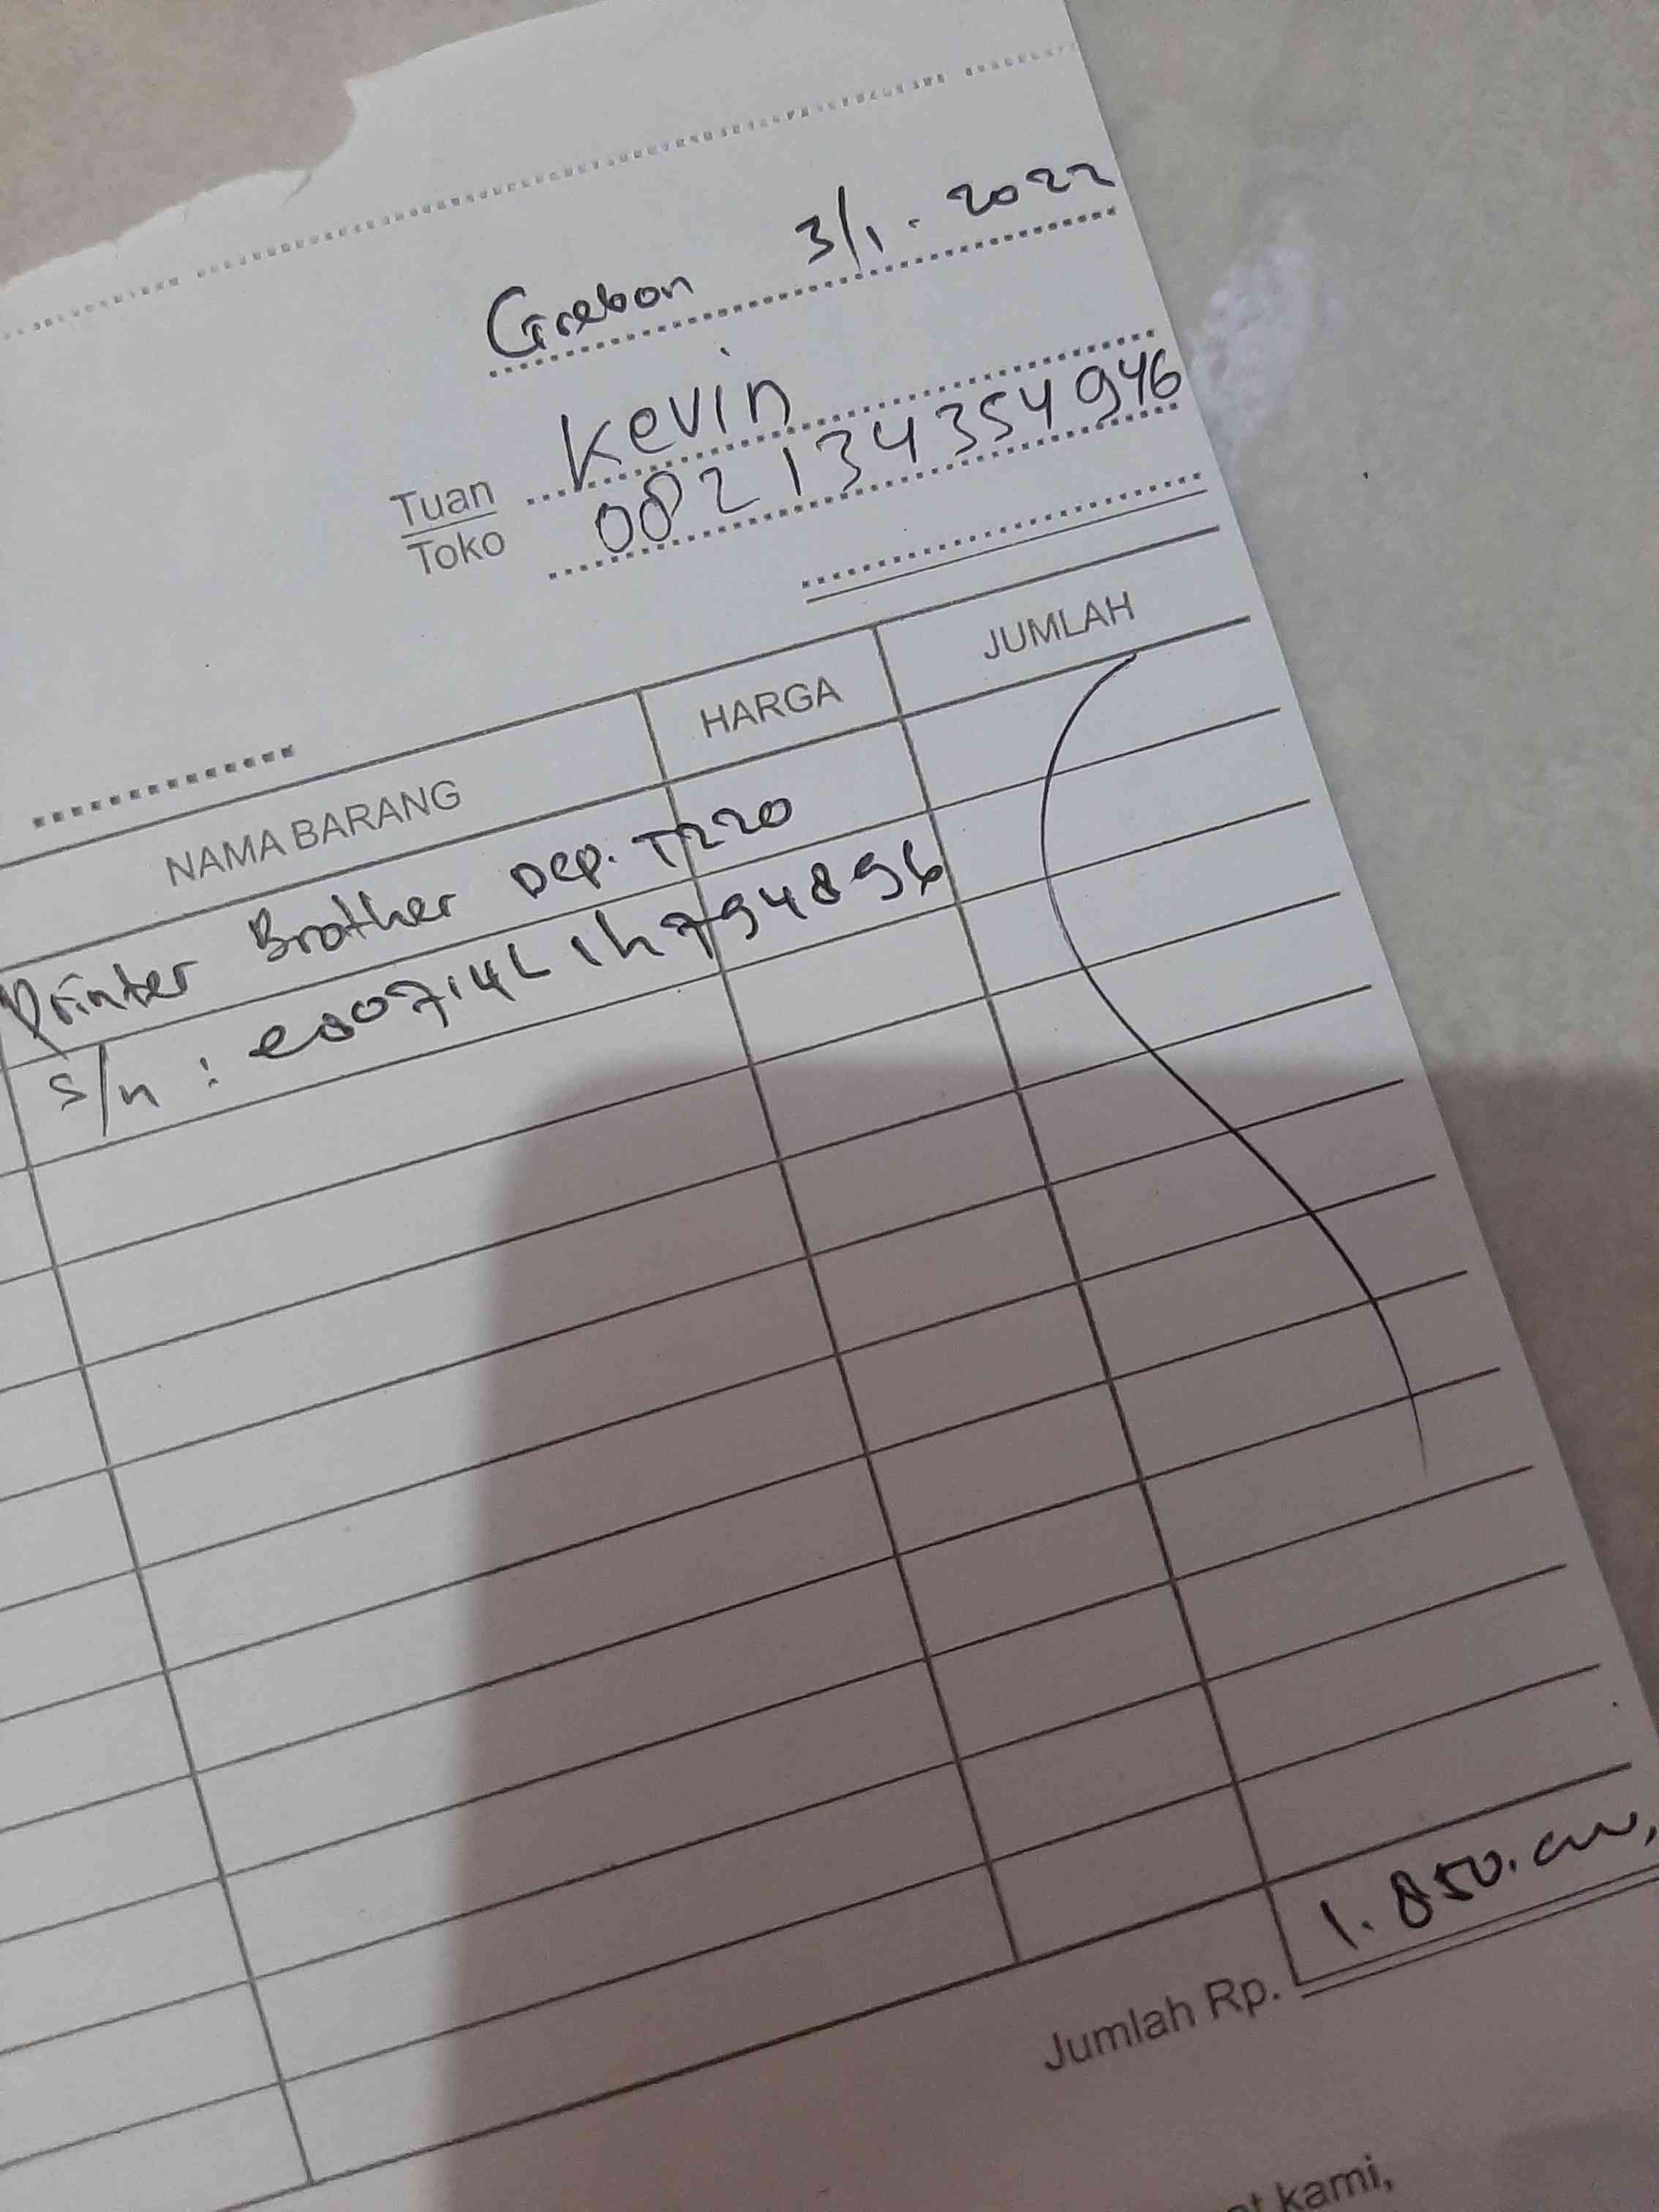 Cirebon 3/1.2022
Tuan Kevin
Toko 082134354946
NAMA BARANG HARGA JUMLAH
Printer Brother Dcp. T220
S/n : e80714L1h794896
Jumlah Rp. 1.850.000,
kami,